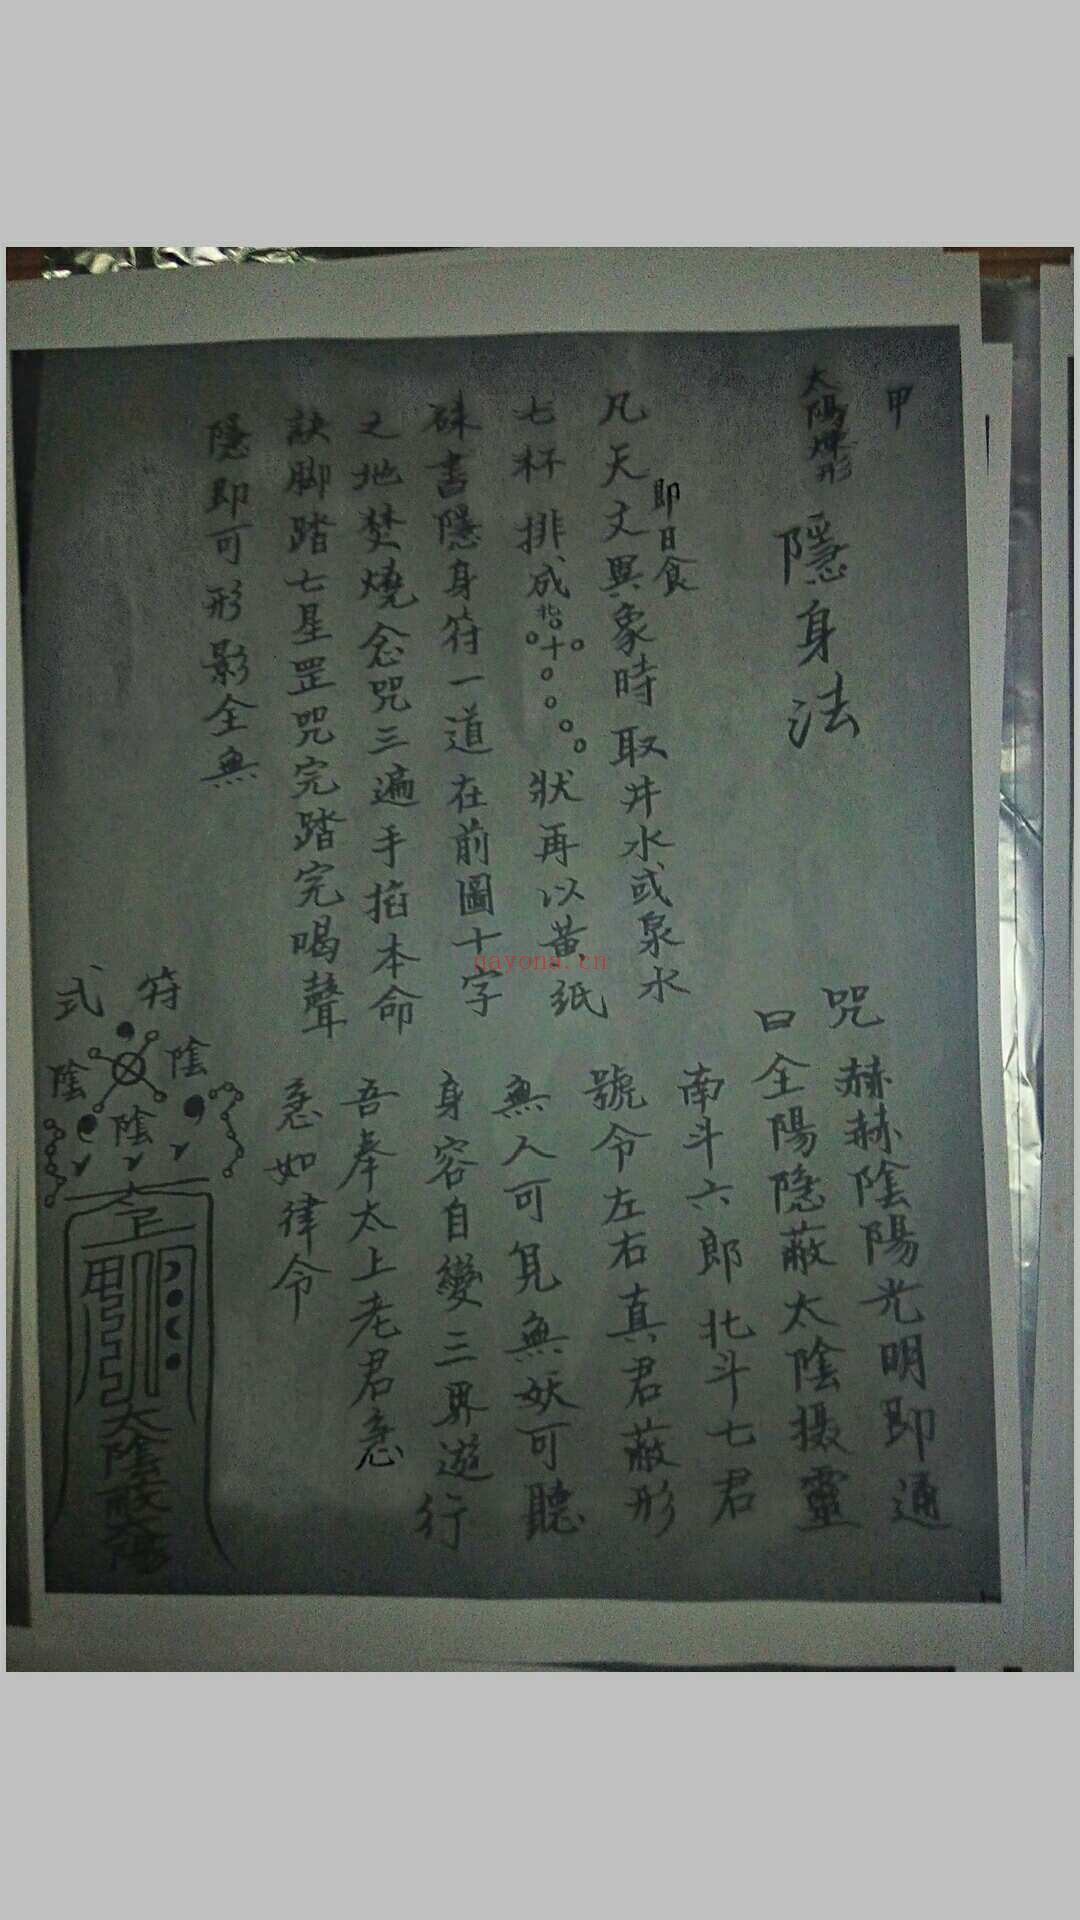 甲
太陽煉形
隱身法
即日食
凡天文異象時取井水或泉水
七杯排成
十
狀再以黃紙
硃書隱身符一道在前圖十字
之地焚燒念咒三遍手掐本命
訣脚踏七星罡咒完踏完喝聲
隱即可形影全無
咒曰
赫赫陰陽光明即通
全陽隐蔽太陰摄靈
南斗六郎北斗七君
號令左右真君蔽形
無人可見無妖可聽
身容自變三界遊行
吾奉太上老君急
急如律令
符式
陰
陰
陰
太陰蔽太陽
gayona.cn